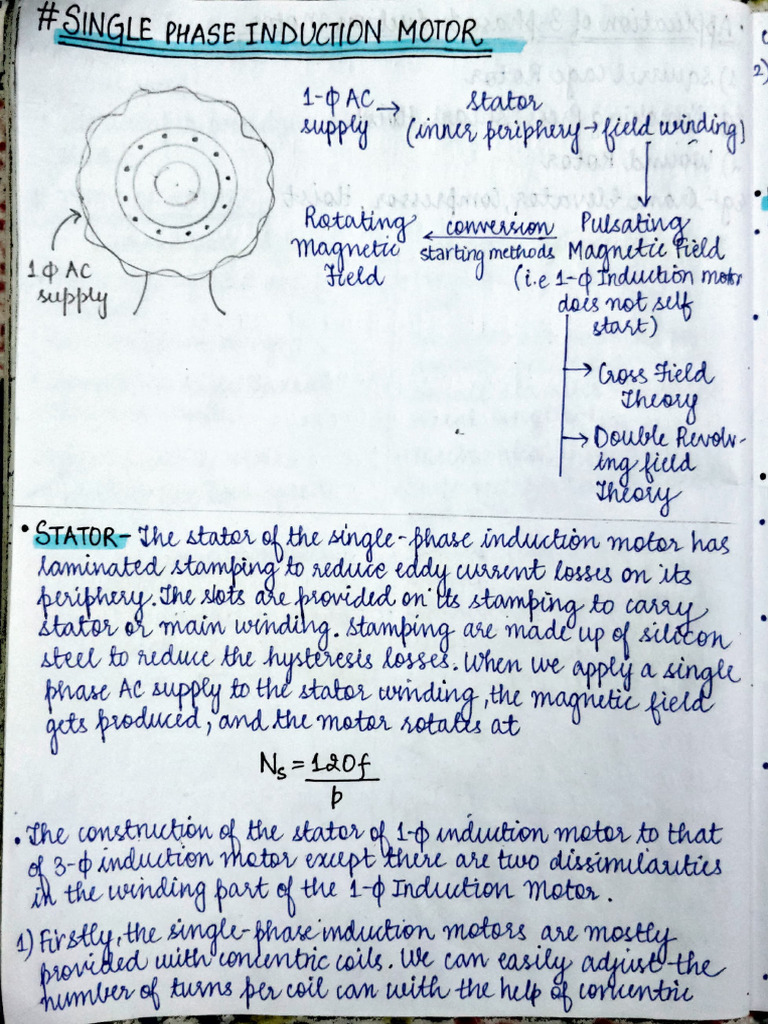 #SINGLE PHASE INDUCTION MOTOR
1-ϕ AC supply → Stator
(inner periphery → field winding)
Rotating Magnetic Field
conversion
starting methods
Pulsating
Magnetic Field
(i.e 1-ϕ Induction motor
does not self
start)
→ Cross Field
Theory
→ Double Revolv-
ing field
Theory
1ϕ AC
supply
• STATOR- The stator of the single-phase induction motor has
laminated stamping to reduce eddy current losses on its
periphery. The slots are provided on its stamping to carry
stator or main winding. Stamping are made up of silicon
steel to reduce the hysteresis losses. When we apply a single
phase AC supply to the stator winding, the magnetic field
gets produced, and the motor rotates at
Ns = 120f
p
• The construction of the stator of 1-ϕ induction motor to that
of 3-ϕ induction motor except there are two dissimilarities
in the winding part of the 1-ϕ Induction Motor.
1) Firstly, the single-phase induction motors are mostly
provided with concentric coils. We can easily adjust the
number of turns per coil can with the help of concentric
2)